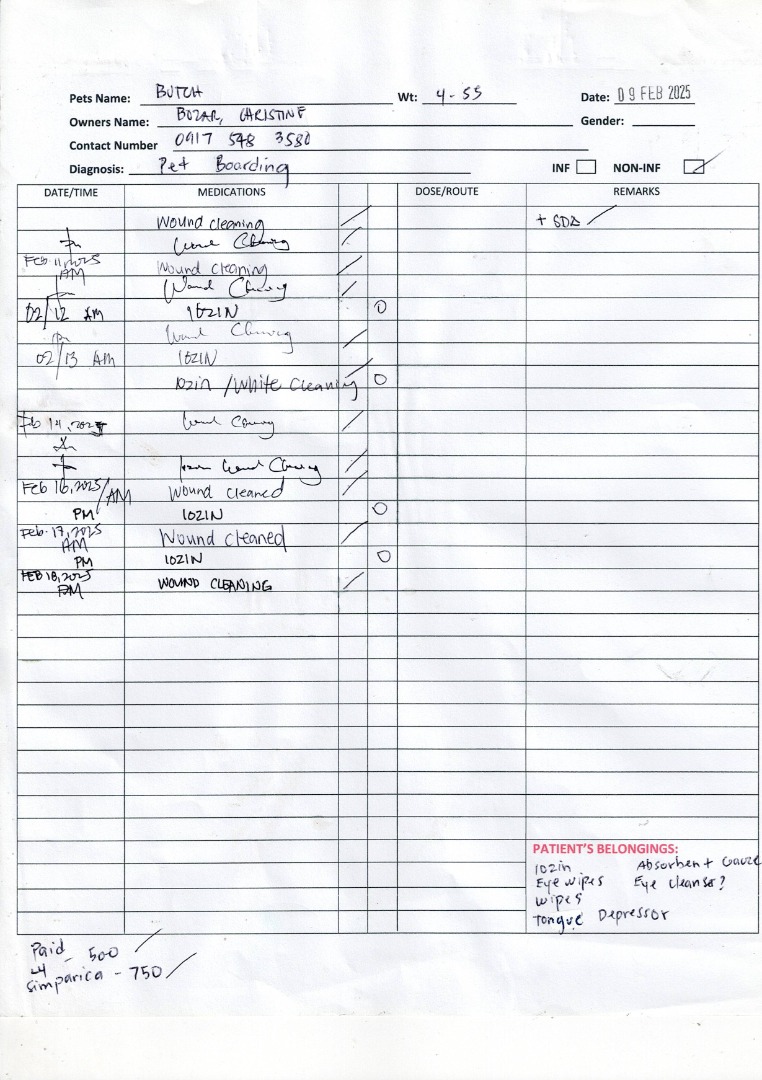 Pets Name: BUTCH Wt: 4-55 Date: 09 FEB 2025
Owners Name: BOZAR, CHRISTINE Gender:
Contact Number 0917 548 3580
Diagnosis: Pet Boarding INF NON-INF
DATE/TIME MEDICATIONS DOSE/ROUTE REMARKS
Wound cleaning + SDA
Wound Cleaning
Feb 11, 2025 AM Wound cleaning
Wound Cleaning
02/12 AM 10ZIN
Wound Cleaning
02/13 AM 10ZIN
10zin / White Cleaning
Feb 14, 2025 Wound Cleaning
Wound Cleaning
Feb 16, 2025/AM Wound cleaned
PM 10ZIN
Feb. 17, 2025 AM Wound cleaned
PM 10ZIN
FEB 18, 2025 PM WOUND CLEANING
PATIENT'S BELONGINGS:
10zin Absorbent Gauze
Eye wipes Eye cleanser?
wipes
Tongue Depressor
Paid - 500
simparica - 750